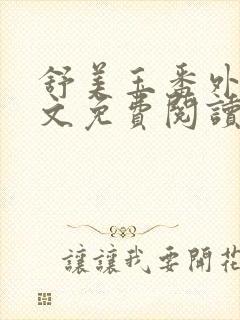 舒美玉番外
文免費閱讀
讓讓我要開花